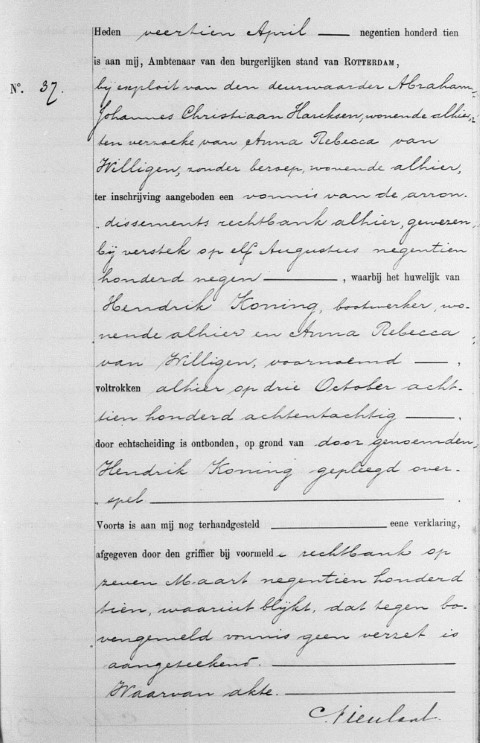 Heden veertien April negentien honderd tien
is aan mij, Ambtenaar van den burgerlijken stand van ROTTERDAM,
No. 37. bij exploit van den deurwaarder Abraham
Johannes Christiaan Harcksen, wonende alhier,
ten verzoeke van Anna Rebecca van
Willigen, zonder beroep, wonende alhier,
ter inschrijving aangeboden een vonnis van de arron-
dissements rechtbank alhier, gewezen
bij verstek op elf Augustus negentien
honderd negen, waarbij het huwelijk van
Hendrik Koning, bootwerker, wo-
nende alhier en Anna Rebecca
van Willigen, voornoemd,
voltrokken alhier op drie October acht-
tien honderd achtentachtig,
door echtscheiding is ontbonden, op grond van door genoemden
Hendrik Koning gepleegd over-
spel
Voorts is aan mij nog terhandgesteld eene verklaring,
afgegeven door den griffier bij voormelde rechtbank op
zeven Maart negentien honderd
tien, waaruit blijkt, dat tegen bo-
vengemeld vonnis geen verzet is
aangeteekend.
Waarvan akte.